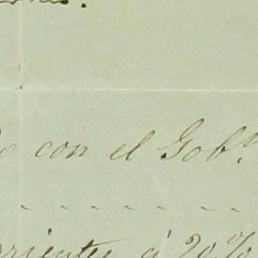 con el Gob.º
rrientes á 20 %